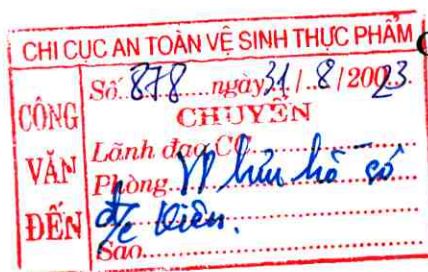 CHI CỤC AN TOÀN VỆ SINH THỰC PHẨM
CÔNG VĂN ĐẾN
Số: 878 ngày 31/.8/2023
CHUYỂN
Lãnh đạo CC
Phòng VP lưu hồ sơ
đ/c Viên.
Sao